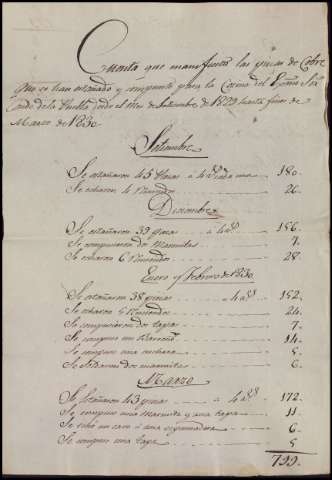 Cuenta que manifiesta las piezas de Cobre
que se han estañado y compuesto para la Cocina del Exmo Sor
Conde de la Puebla desde el mes de Setiembre de 1829 hasta fines de
Marzo de 1830.
Setiembre
Se estañaron 45 Piezas a 4 rs cada una 180.
Se echaron 4 Remiendos 26.
Diciembre
Se estañaron 39 piezas a 4 rs 156.
Se compusieron dos Marmitas 7.
Se echaron 6 Remiendos 28.
Enero y Febrero de 1830.
Se estañaron 38 piezas a 4 rs 152.
Se echaron 5 Remiendos 24.
Se compusieron dos tapas 7.
Se compuso un 14.
Se compuso una cuchara 5.
Se soldaron dos marmitas 6.
Marzo
Se Estañaron 43 piezas a 4 rs 172.
Se compuso una Marmita y una tapa 11.
Se echó un cavo a una espumadera 6.
Se compuso una tapa 5
799.